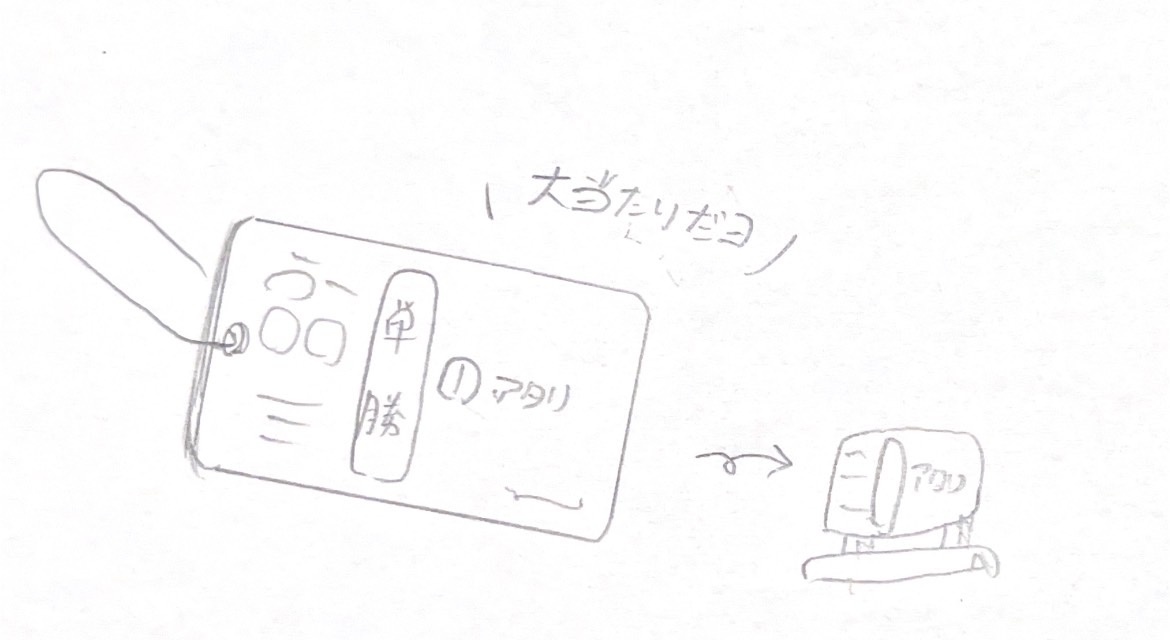 大当たりだヨ
単勝
① アタリ
アタリ